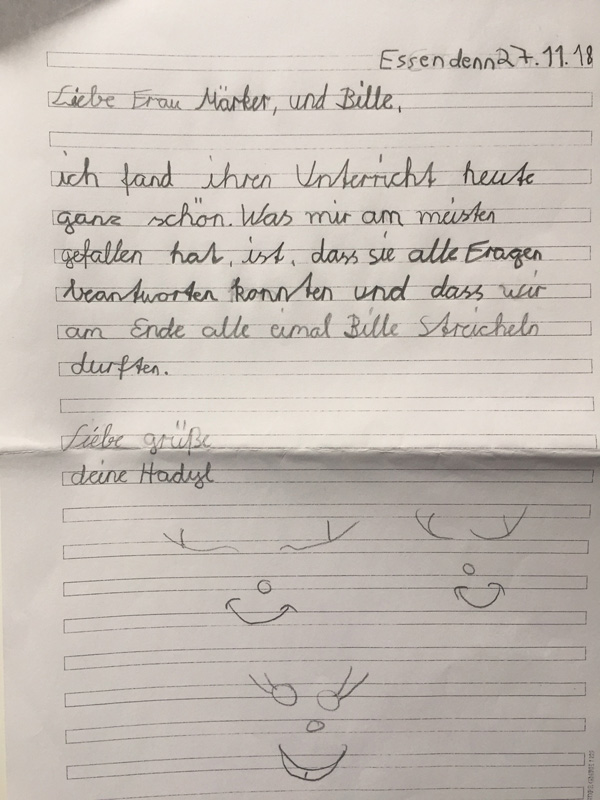 Essen denn 27.11.18
Liebe Frau Märker, und Bille,
ich fand ihren Unterricht heute
ganz schön. Was mir am meisten
gefallen hat, ist, dass sie alle Fragen
beantworten konnten und dass wir
am Ende alle eimal Bille Streicheln
durften.
Liebe grüße
deine Hadyl